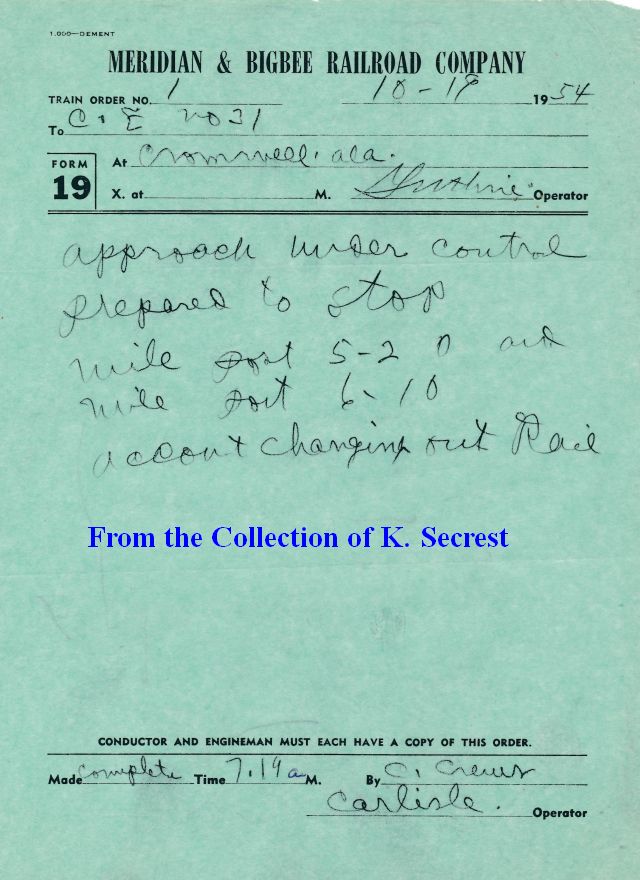 1.000—DEMENT
MERIDIAN & BIGBEE RAILROAD COMPANY
TRAIN ORDER NO. 1 10-18 1954
To C. E no 31
FORM 19
At Cromwell. ala.
X. at M. Guthrie Operator
approach under control
prepared to stop
mile post 5-20 and
mile post 6-10
account changing out Rail
From the Collection of K. Secrest
CONDUCTOR AND ENGINEMAN MUST EACH HAVE A COPY OF THIS ORDER.
Made complete Time 7.19 a M. By C. Crews
Carlisle. Operator